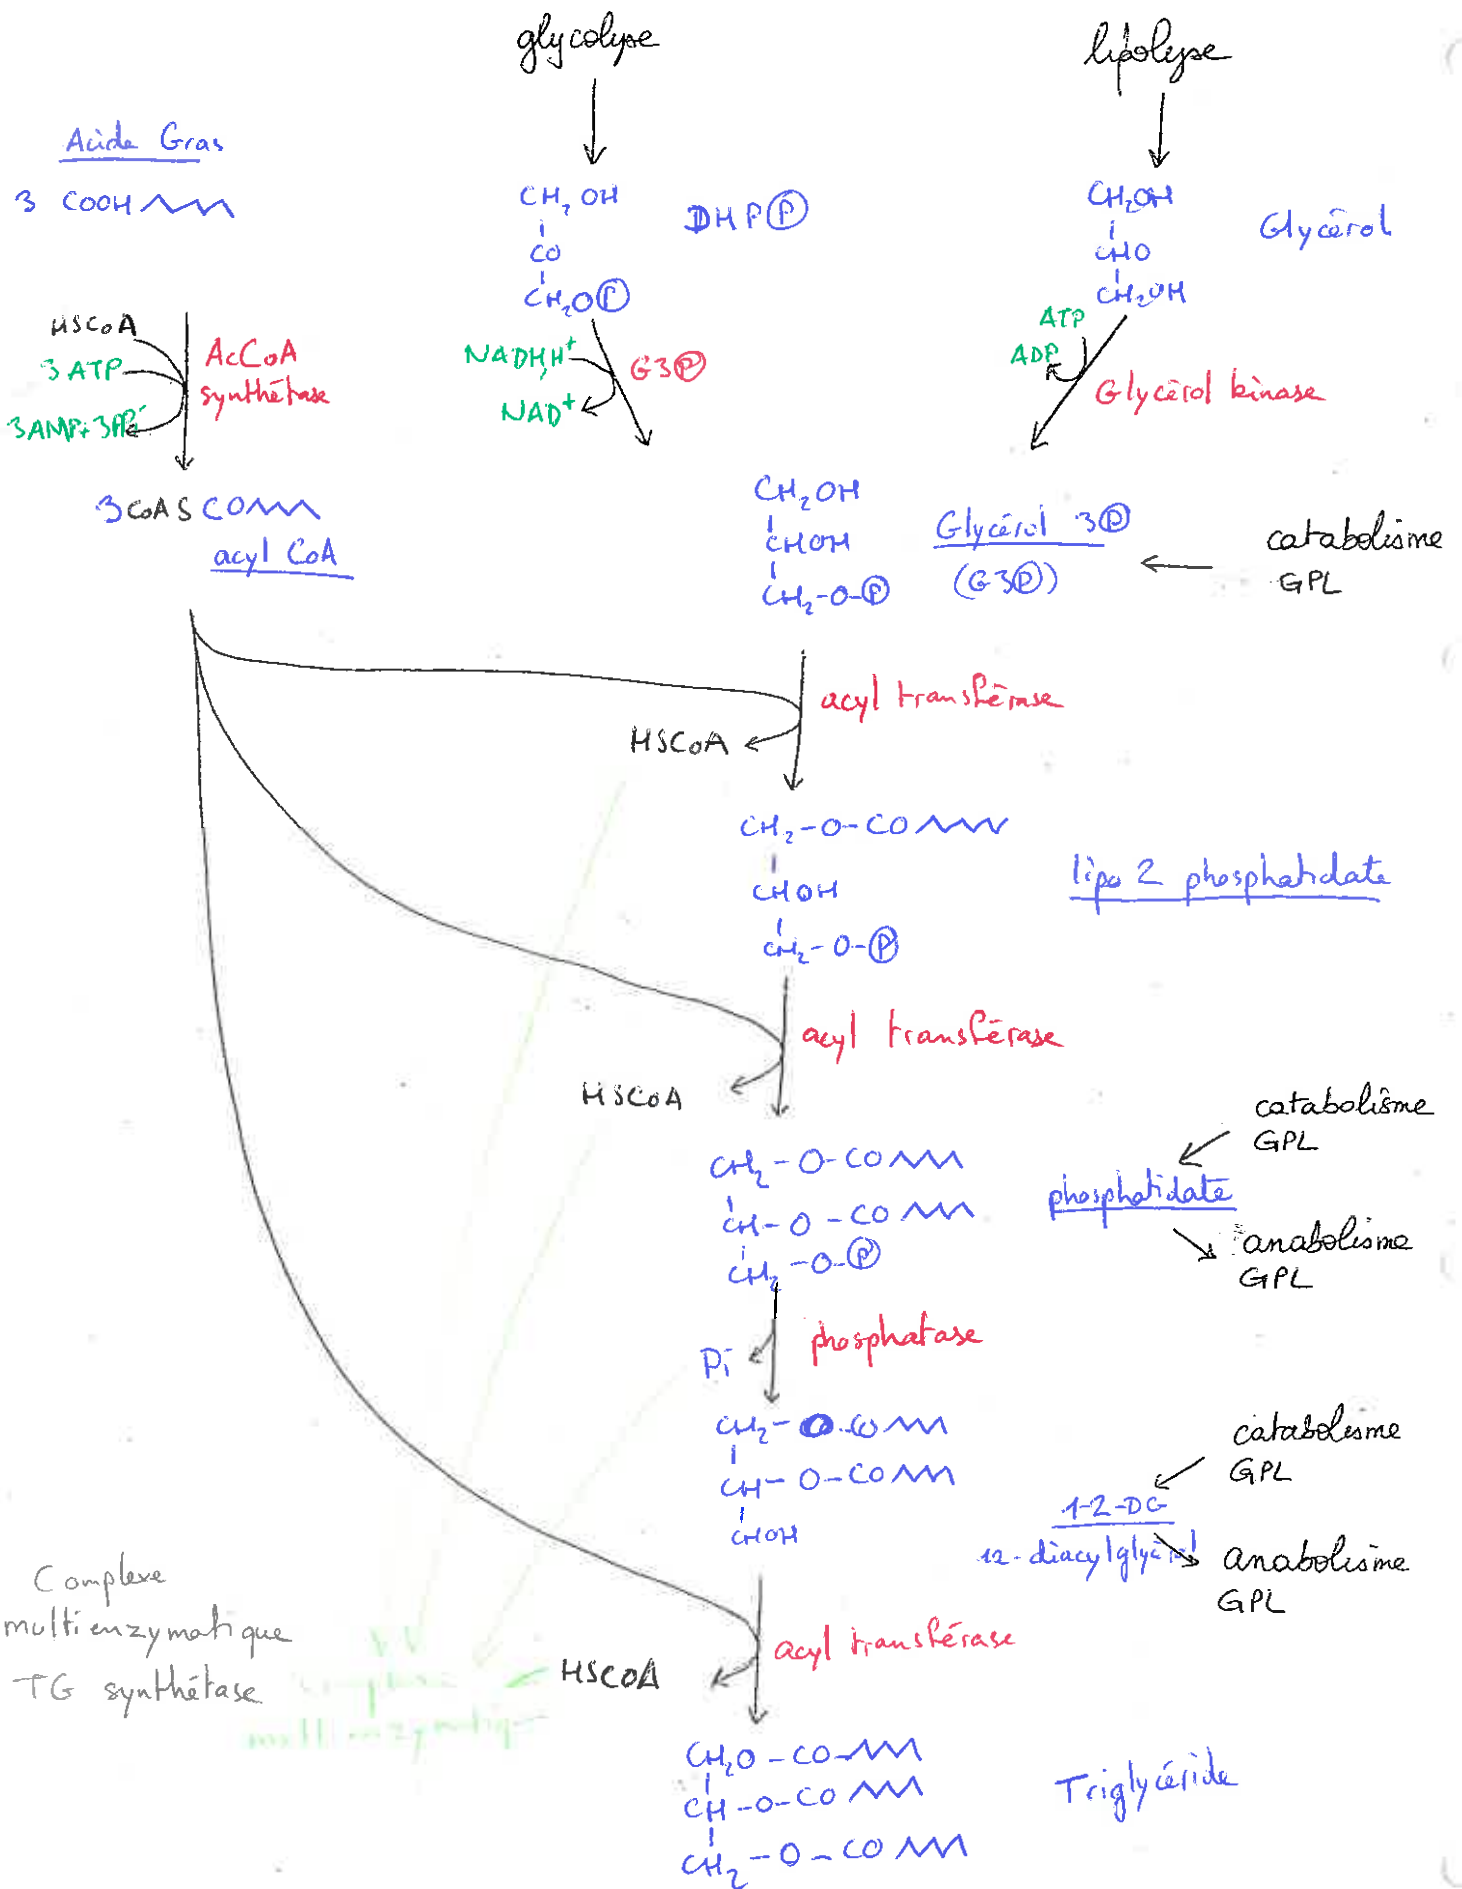 glycolyse
lipolyse
Acide Gras
3 COOH
CH₂OH
CO
CH₂OⓅ
DHPⓅ
CH₂OH
CHO
CH₂OH
Glycérol
HSCoA
3ATP
3AMP+3PPi
AcCoA
synthétase
NADH,H⁺
NAD⁺
G3Ⓟ
ATP
ADP
Glycérol kinase
3CoASCO
acyl CoA
CH₂OH
CHOH
CH₂-O-Ⓟ
Glycérol 3Ⓟ
(G3Ⓟ)
catabolisme
GPL
acyl transférase
HSCoA
CH₂-O-CO
CHOH
CH₂-O-Ⓟ
lipo 2 phosphatidate
acyl transférase
HSCoA
CH₂-O-CO
CH-O-CO
CH₂-O-Ⓟ
catabolisme
GPL
phosphatidate
anabolisme
GPL
Pi
phosphatase
CH₂-O-CO
CH-O-CO
CHOH
catabolisme
GPL
1-2-DG
12-diacylglycérol
anabolisme
GPL
Complexe
multienzymatique
TG synthétase
acyl transférase
HSCOA
CH₂O-CO
CH-O-CO
CH₂-O-CO
Triglycéride